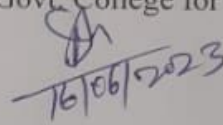 Govt College for
16/06/2023